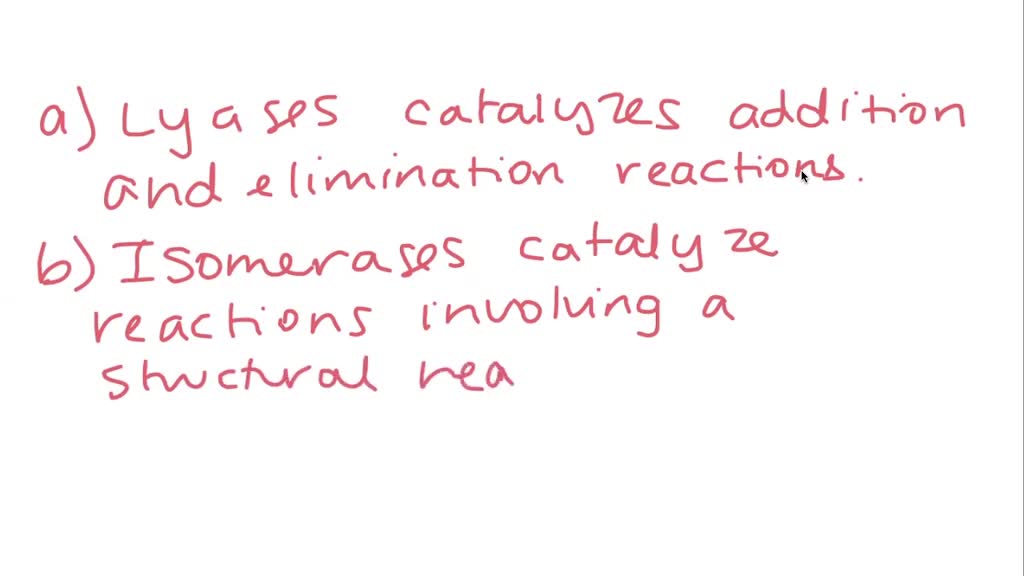 a) Lyases catalyzes addition
and elimination reactions.
b) Isomerases catalyze
reactions involving a
structural rea